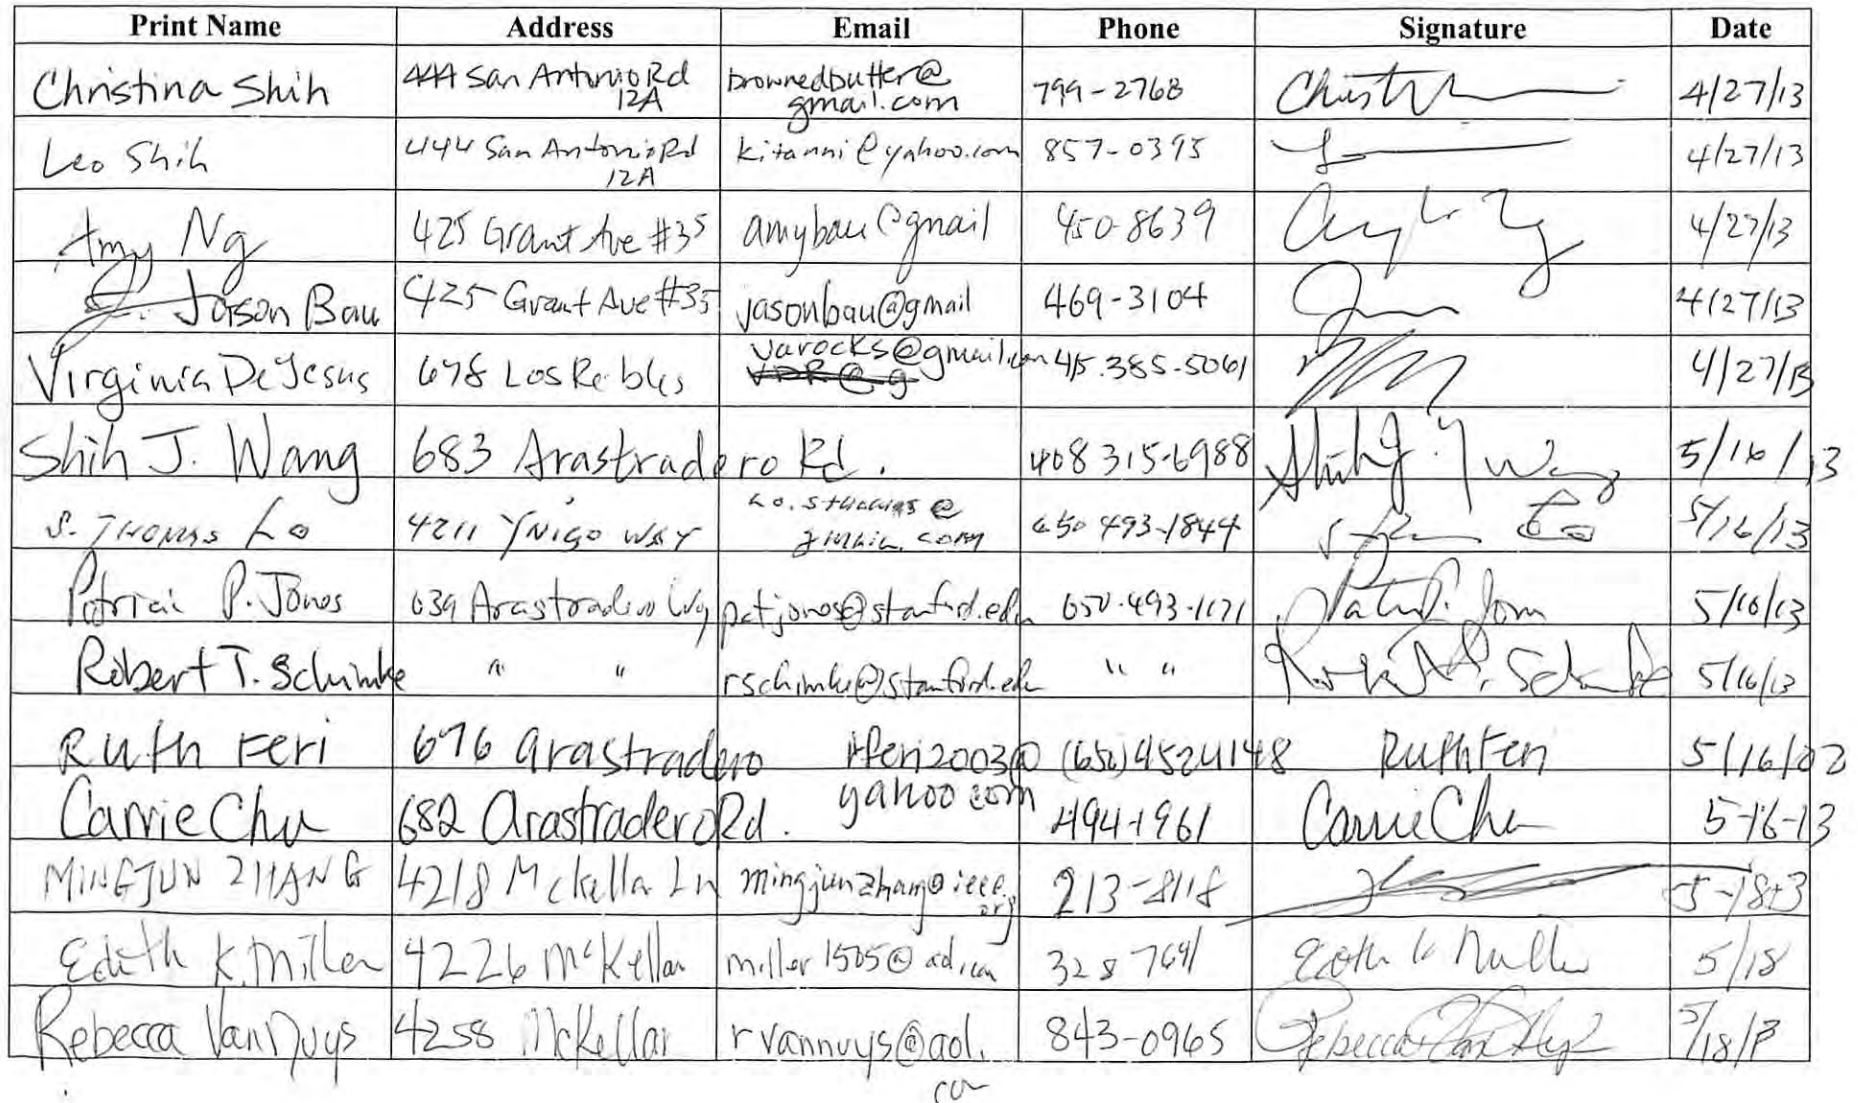 Print Name Address Email Phone Signature Date
Christina Shih 444 San Antonio Rd brownedbutter@ 799-2768 4/27/13
12A gmail.com
Leo Shih 444 San Antonio Rd kitanni@yahoo.com 857-0395 4/27/13
12A
Amy Ng 425 Grant Ave #35 amybau@gmail 450-8639 4/27/13
Jason Bau 425 Grant Ave #35 jasonbau@gmail 469-3104 4/27/13
varocks@gmail.com
Virginia DeJesus 678 Los Robles 415.385-5061 4/27/13
Shih J. Wang 683 Arastradero Rd. 408 315-6988 Shih J. Wang 5/16/13
S. THOMAS LO 4211 YNIGO WAY lo.sthomas@ 650 493-1844 5/16/13
gmail.com
Patricia P. Jones 639 Arastradero patjones@stanford.edu 650-493-1171 5/16/13
Robert T. Schimke " " rschimke@stanford.edu " " 5/16/13
Ruth Feri 676 Arastradero rtferi2003@ (650)4524148 Ruth Feri
yahoo com
Carrie Chu 682 Arastradero Rd. 494-1961 Carrie Chu 5-16-13
MINGJUN ZHANG 4218 Mckella Ln mingjunzhang@ieee. 213-8118
org
Edith K. Miller 4226 McKellar miller1505@aol.com 328 7641 Edith K Miller 5/18
Rebecca VanNuys 4258 McKellar rvannuys@aol. 843-0965 Rebecca VanNuys 5/18/13
com